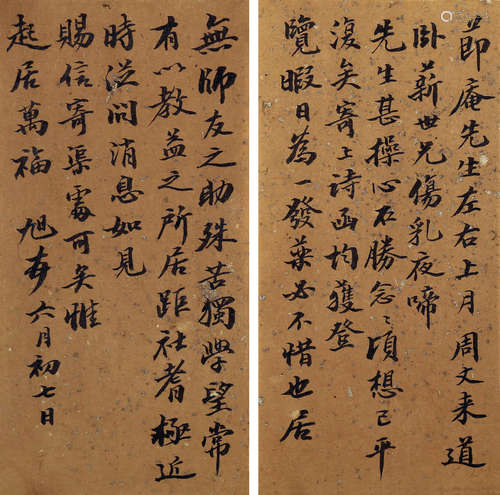 節庵先生左右上月周文来道
卧薪世兄傷乳夜啼
先生甚操心不勝念〻頃想已平
復矣寄上诗函均獲登
覽暇日為一發藥必不惜也居
無師友之助殊苦獨學望常
有以教益之所居距社耆極近
時從問消息如見
賜信寄渠處可矣惟
起居萬福 旭 六月初七日